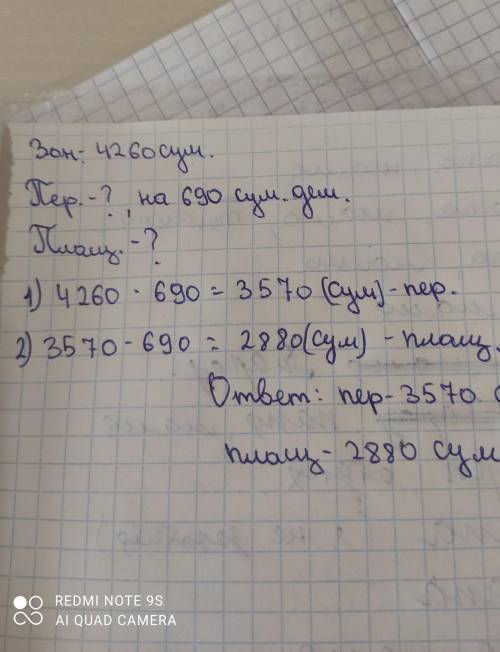 Зон: 4260 сум.
Пер. - ?, на 690 сум. деш.
Площ. - ?
1) 4260 - 690 = 3570 (сум) - пер.
2) 3570 - 690 = 2880 (сум) - площ.
Ответ: пер - 3570 (
площ - 2880 сум
REDMI NOTE 9S
AI QUAD CAMERA